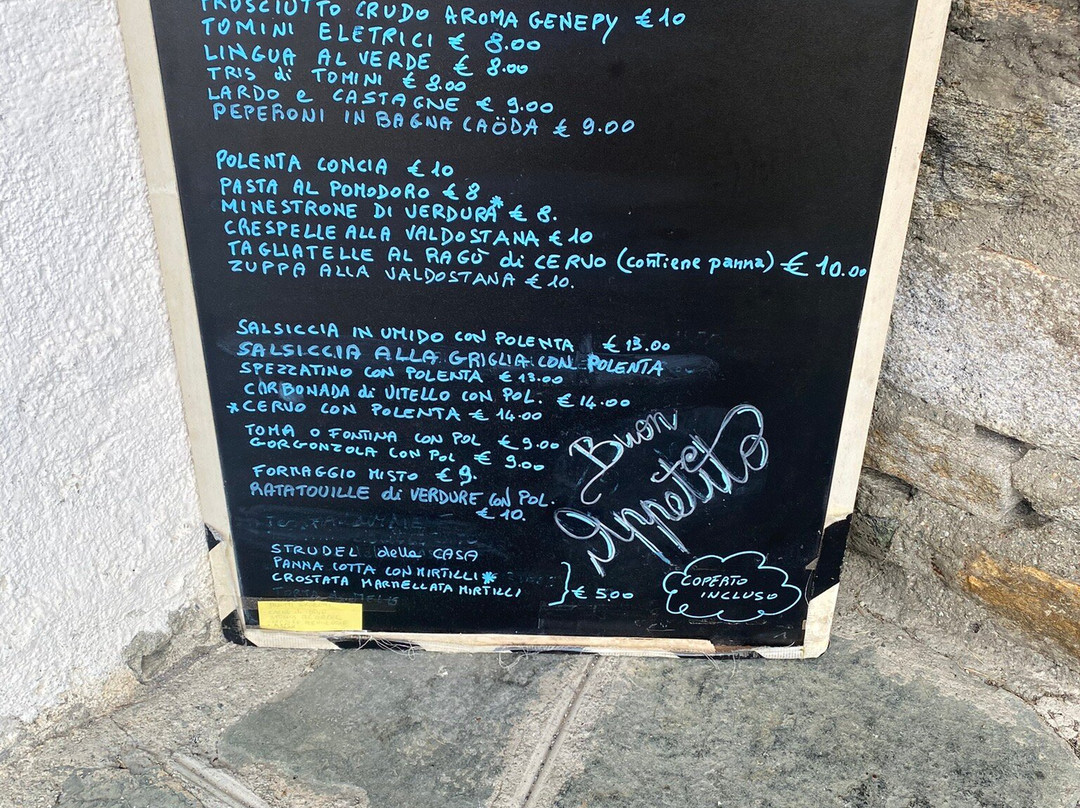 PROSCIUTTO CRUDO AROMA GENEPY €10
TOMINI ELETRICI € 8.00
LINGUA AL VERDE € 8.00
TRIS di TOMINI € 8.00
LARDO e CASTAGNE € 9.00
PEPERONI IN BAGNA CAÖDA € 9.00
POLENTA CONCIA €10
PASTA AL POMODORO € 8
MINESTRONE DI VERDURA* € 8.
CRESPELLE ALLA VALDOSTANA €10
TAGLIATELLE AL RAGÙ di CERVO (contiene panna) € 10.00
ZUPPA ALLA VALDOSTANA €10.
SALSICCIA IN UMIDO CON POLENTA € 13.00
SALSICCIA ALLA GRIGLIA CON POLENTA
SPEZZATINO CON POLENTA € 13.00
CARBONADA di VITELLO CON POL. € 14.00
*CERVO CON POLENTA € 14.00
TOMA O FONTINA CON POL € 9.00
GORGONZOLA CON POL € 9.00
FORMAGGIO MISTO € 9.
RATATOUILLE di VERDURE CON POL.
€ 10.
Buon
Appetito
STRUDEL della CASA
PANNA COTTA CON MIRTILLI*
CROSTATA MARMELLATA MIRTILLI
€ 5.00
COPERTO
INCLUSO